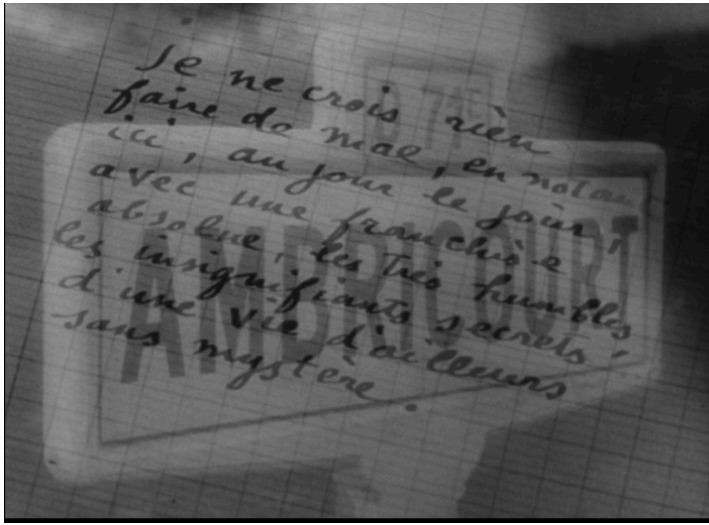 Je ne crois rien
faire de mal, en notant
ici, au jour le jour,
avec une franchise
absolue, les très humbles
les insignifiants secrets
d'une vie d'ailleurs
sans mystère.
D 71E
AMBRICOURT